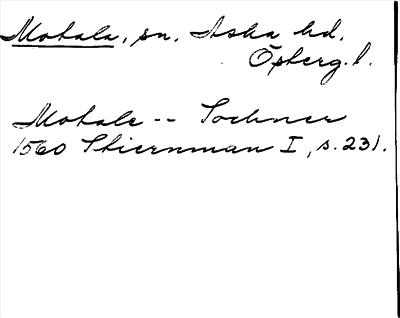 Motala, sn. Aska hd,
Östergl.
Motale -- Sochner
1560 Stiernman I, s. 231.